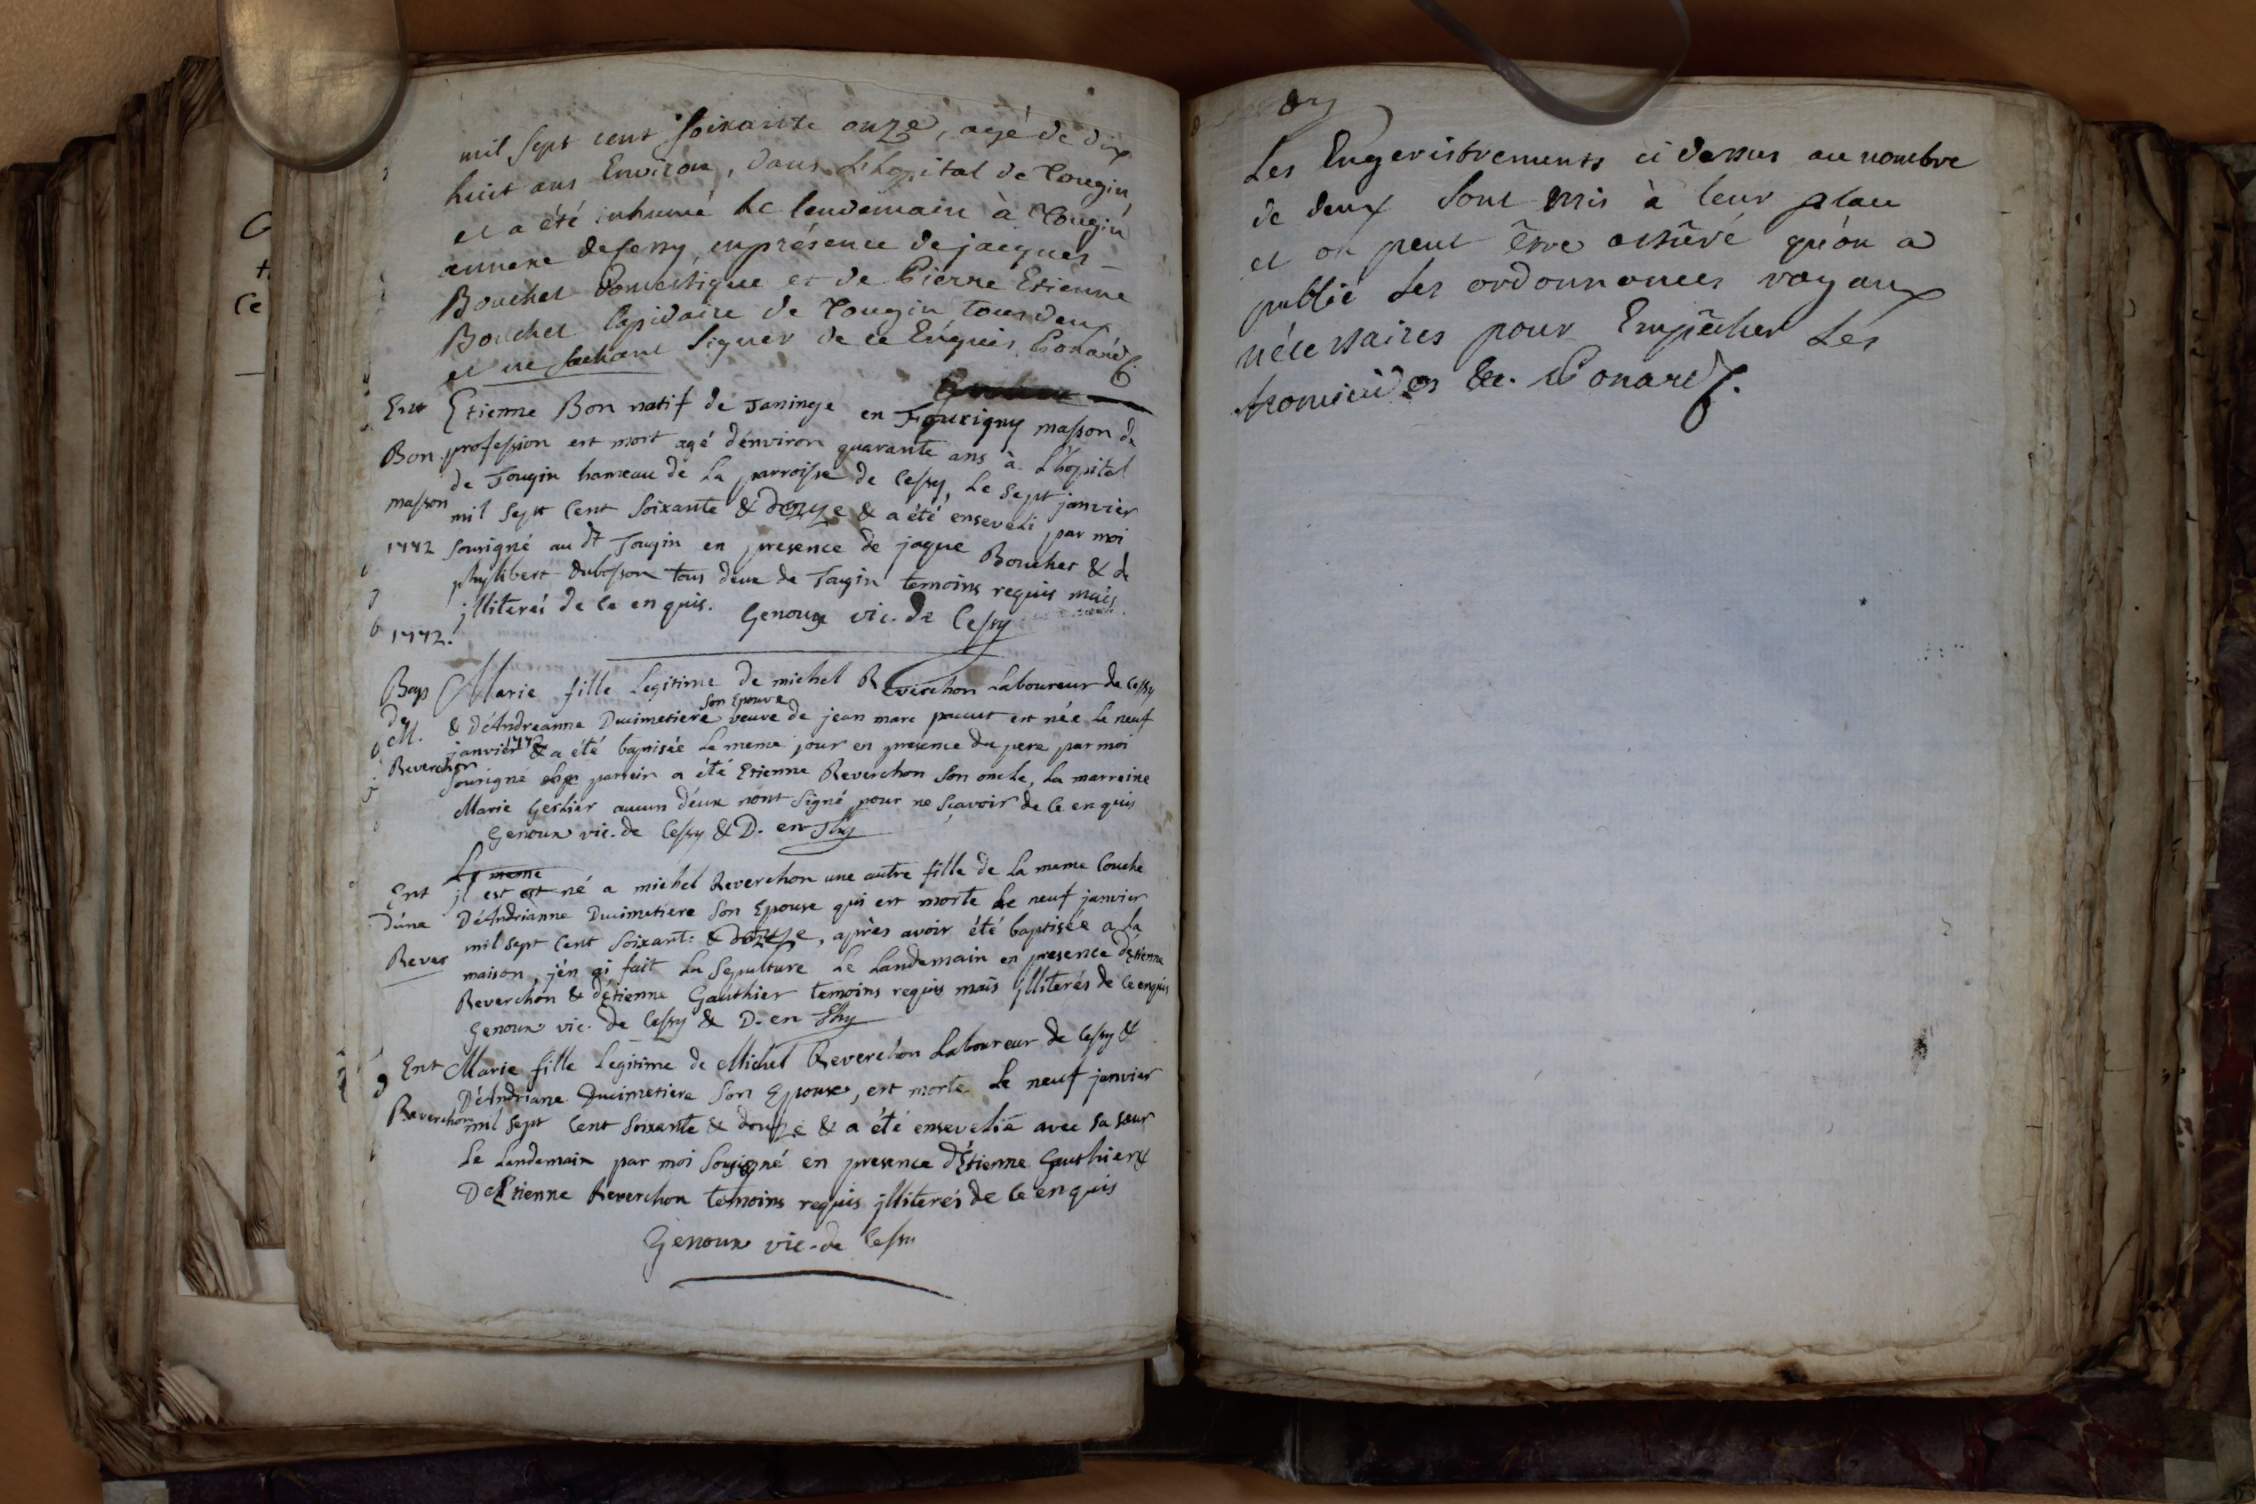 mil sept cent soixante onze, agé de dix
huit ans Environ, dans L'hopital de Tougin
et a été inhumé Le lendemain à Tougin
annexe de Cessy, en présence de jacques
Bouchet domestique et de Pierre Etienne
Bouchet Lapidaire de Tougin tous deux
et ne sachant signer de ce Enquis Ponard
Ent Etienne Bon natif de Taninge en Foucigny masson de
Bon profession est mort agé d'environ quarante ans à L'hopital
de Tougin hameau de La parroisse de Cessy, Le sept janvier
masson mil sept Cent soixante & douze & a été enseveli par moi
1772 sousigné au dt Tougin en presence de jaque Bouchet & de
phylibert dubosson tous deux de Tougin temoins requis mais
jlliterés de ce enquis. Genoux vic. de Cessy
1772.
Bap Marie fille Legitime de michel Reverchon Laboureur de Cessy
son Epouse
de & d'Andreanne Ducimetiere veuve de jean marc est née Le neuf
M. janvier 1772 & a été baptisée Le meme jour en presence du pere par moi
Reverchon sousigné parrein a été Etienne Reverchon son oncle, La marreine
Marie Gerlier aucun d'eux n'ont signé pour ne sçavoir de ce enquis
Genoux vic. de Cessy & D. en Thy
Le meme
Ent jl est né a michel Reverchon une autre fille de La meme Couche
d'une D'Andrianne Ducimetiere son Epouse qui est morte Le neuf janvier
mil sept Cent soixant: & douze, après avoir été baptisée a La
Rever maison, j'en ai fait La sepulture Le Landemain en presence d'Etienne
Reverchon & d'etienne Gauthier temoins requis mais jlliterés de ce enquis
Genoux vic. de Cessy & D. en Thy
Ent Marie fille Legitime de Michel Reverchon Laboureur de Cessy &
D'Andriane Ducimetiere son Epouse, est morte Le neuf janvier
Reverchon mil sept Cent soixante & douze & a été ensevelie avec sa sœur
Le Landemain par moi sousigné en presence d'Etienne Gauthier &
D'Etienne Reverchon temoins requis jlliterés de ce enquis
Genoux vic. de Cessy
Les Engeristrements ci dessus au nombre
de deux sont mis à leur place
et on peut être assûré qu'on a
publié Les ordonnances royaux
nécessaires pour Empêcher Les
homicides &c. Ponard